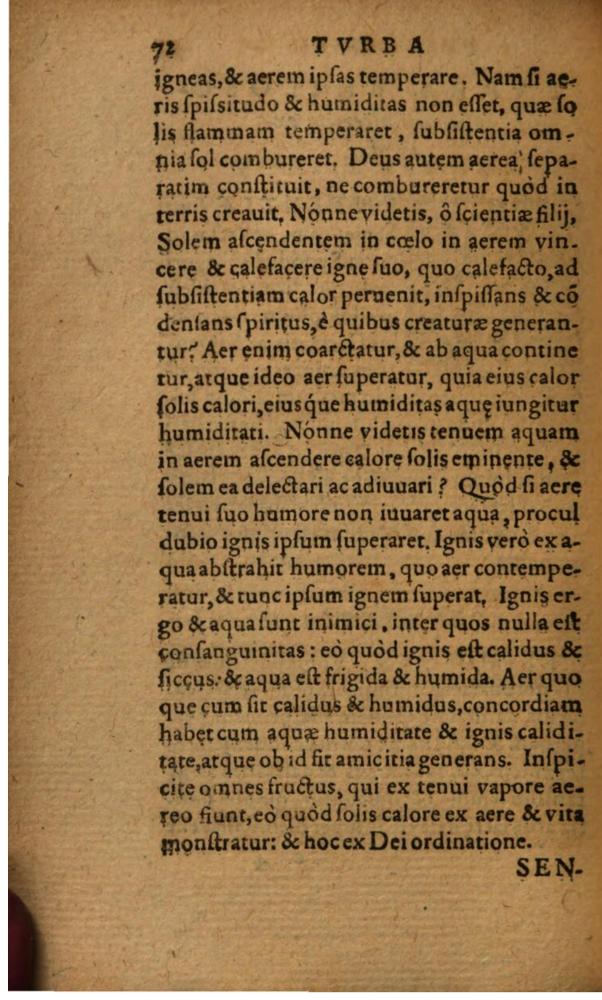 72 TVRBA
igneas, & aerem ipſas temperare. Nam ſi ae-
ris ſpiſsitudo & humiditas non eſſet, quæ ſo
lis flammam temperaret, ſubſiſtentia om-
nia ſol combureret. Deus autem aerea, ſepa-
ratim conſtituit, ne combureretur quòd in
terris creauit. Nónne videtis, ô ſcientiæ filij,
Solem aſcendentem in cœlo in aerem vin-
cere & calefacere igne ſuo, quo calefacto, ad
ſubſiſtentiam calor peruenit, inſpiſſans & cō
denſans ſpiritus, è quibus creaturæ generan-
tur? Aer enim coarctatur, & ab aqua contine
tur, atque ideo aer ſuperatur, quia eius calor
ſolis calori, eiusq́ue humiditas aquę iungitur
humiditati. Nónne videtis tenuem aquam
in aerem aſcendere calore ſolis eminente, &
ſolem ea delectari ac adiuuari? Quòd ſi aerę
tenui ſuo humore non iuuaret aqua, procul
dubio ignis ipſum ſuperaret. Ignis verò ex a-
qua abſtrahit humorem, quo aer contempe-
ratur, & tunc ipſum ignem ſuperat. Ignis er-
go & aqua ſunt inimici, inter quos nulla eſt
conſanguinitas: eò quòd ignis eſt calidus &
ſiccus: & aqua eſt frigida & humida. Aer quo
que cum ſit calidus & humidus, concordiam
habet cum aquæ humiditate & ignis calidi-
tate, atque ob id fit amicitia generans. Inſpi-
cite omnes fructus, qui ex tenui vapore ae-
reo fiunt, eò quòd ſolis calore ex aere & vita
monſtratur: & hoc ex Dei ordinatione.
SEN-